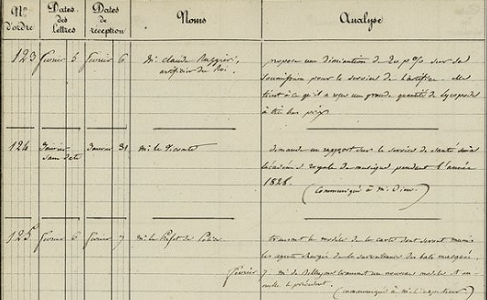 Nos d'ordre
Dates des Lettres
Dates de réception
Noms
Analyse
123 février 5 février 6 M. Claude Ruggieri, artificier du Roi.
propose une diminution de 20 p% sur sa
soumission pour le service de l'artifice
à ce qu'il a une grande quantité de lycopode
à très bas prix
124 Janvier sans date Janvier 31 M. le Vicomte
demande un rapport sur le service de santé
académie royale de musique pendant l'année
1828.
(Communiqué à M.
125 février 6 février 7 M. le Préfet de Police
transmet le modèle de la carte dont seront munis
les agents chargés de la surveillance des bals masqués.
février 7. M. de Belleyme transmet un nouveau modèle
le précédent. (communiqué à M. l'inspecteur)